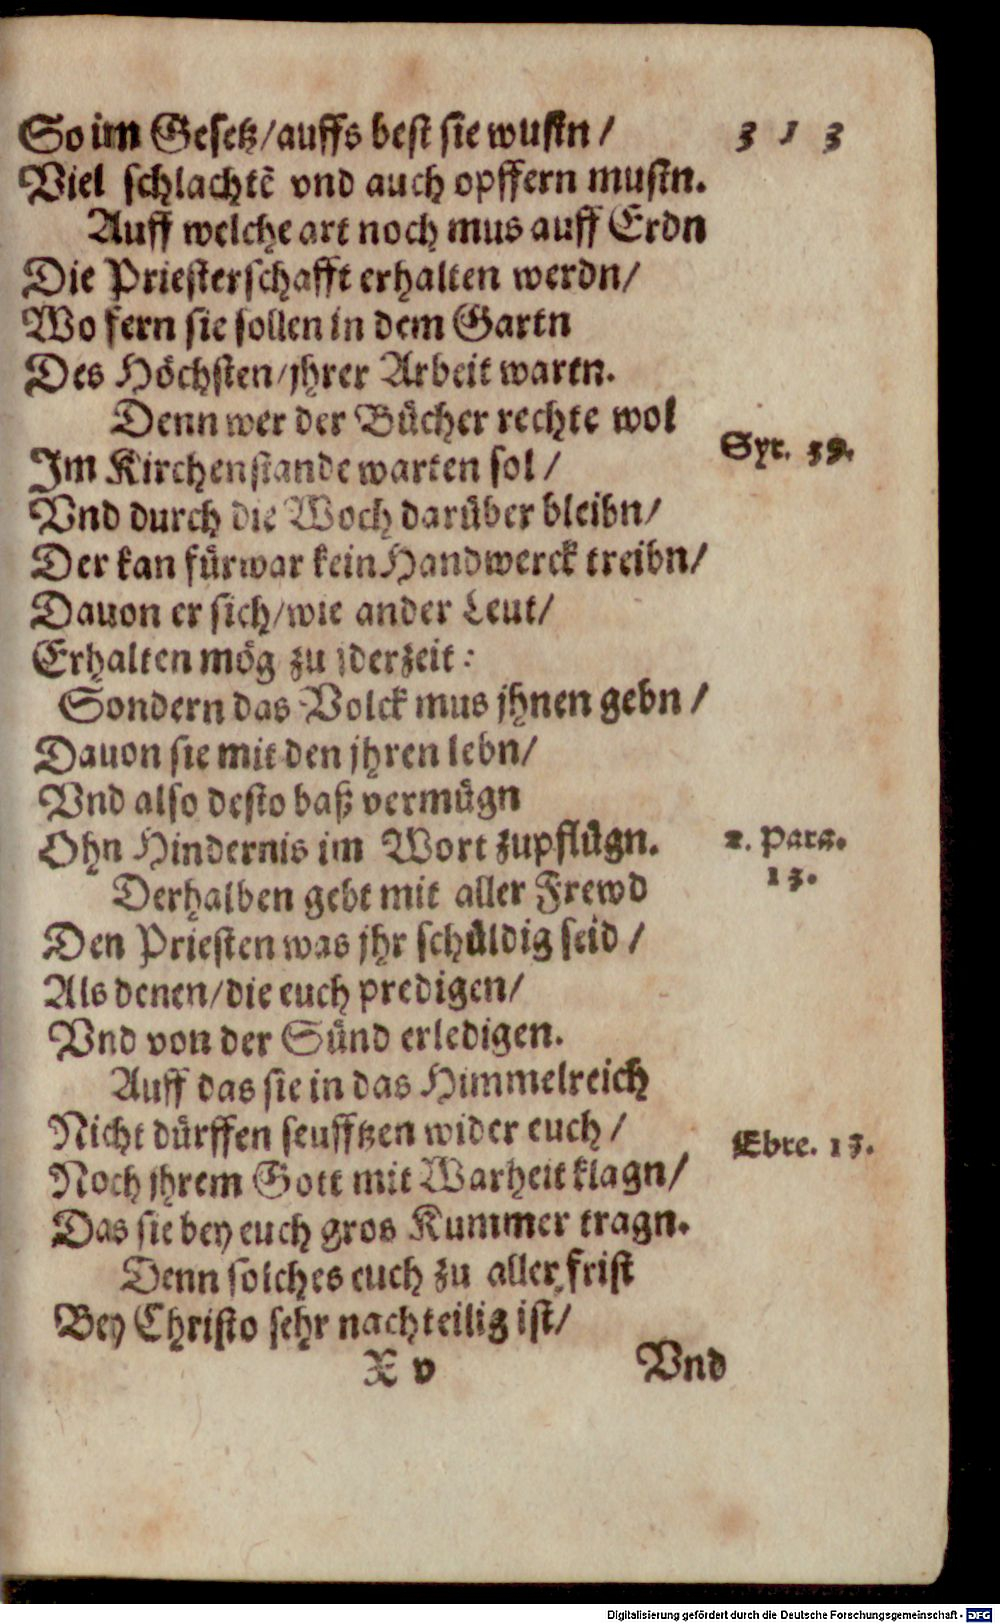 313
So im Gesetz/auffs best sie wustn/
Viel schlachtẽ vnd auch opffern mustn.
Auff welche art noch mus auff Erdn
Die Priesterschafft erhalten werdn/
Wo fern sie sollen in dem Gartn
Des Höchsten/jhrer Arbeit wartn.
Denn wer der Bücher rechte wol
Syr. 39.
Im Kirchenstande warten sol/
Vnd durch die Woch darüber bleibn/
Der kan fürwar kein Handwerck treibn/
Dauon er sich/wie ander Leut/
Erhalten mög zu jderzeit:
Sondern das Volck mus jhnen gebn/
Dauon sie mit den jhren lebn/
Vnd also desto baß vermügn
Ohn Hindernis im Wort zupflügn.
2. Para.
13.
Derhalben gebt mit aller Frewd
Den Priesten was jhr schüldig seid/
Als denen/die euch predigen/
Vnd von der Sünd erledigen.
Auff das sie in das Himmelreich
Nicht dürffen seufftzen wider euch/
Ebre. 13.
Noch jhrem Gott mit Warheit klagn/
Das sie bey euch gros Kummer tragn.
Denn solches euch zu aller frist
Bey Christo sehr nachteilig ist/
X v
Vnd
Digitalisierung gefördert durch die Deutsche Forschungsgemeinschaft - DFG